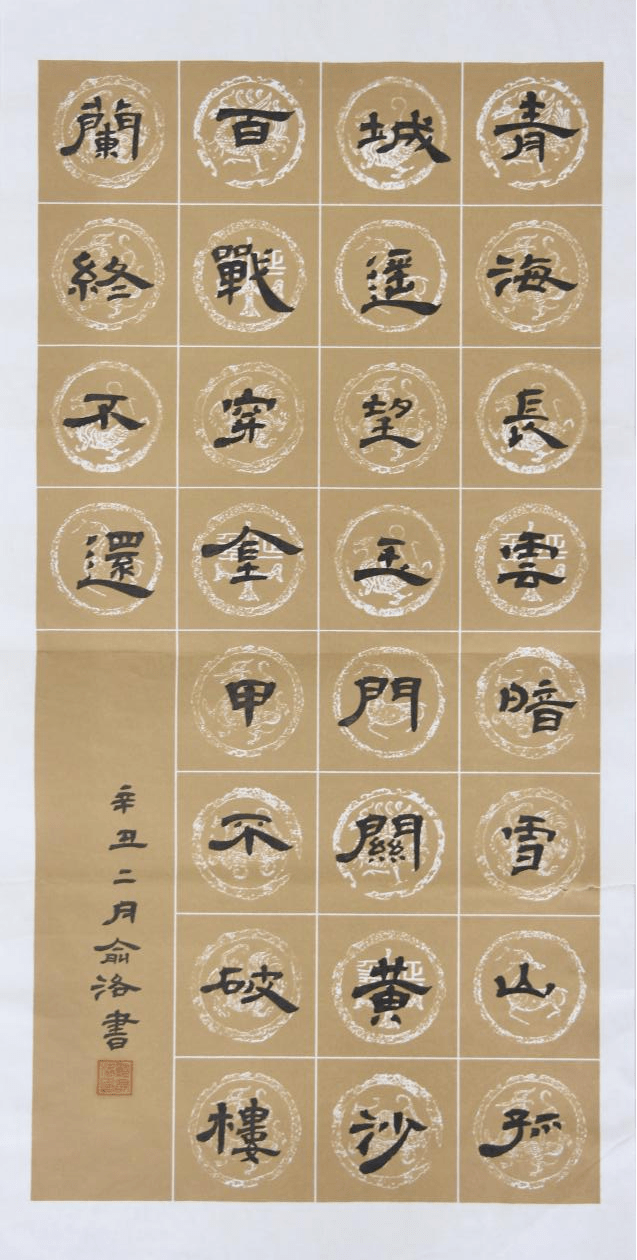 青海長雲暗雪山孤
城遥望玉門關黄沙
百戰穿金甲不破樓
蘭終不還
辛丑二月俞洛書